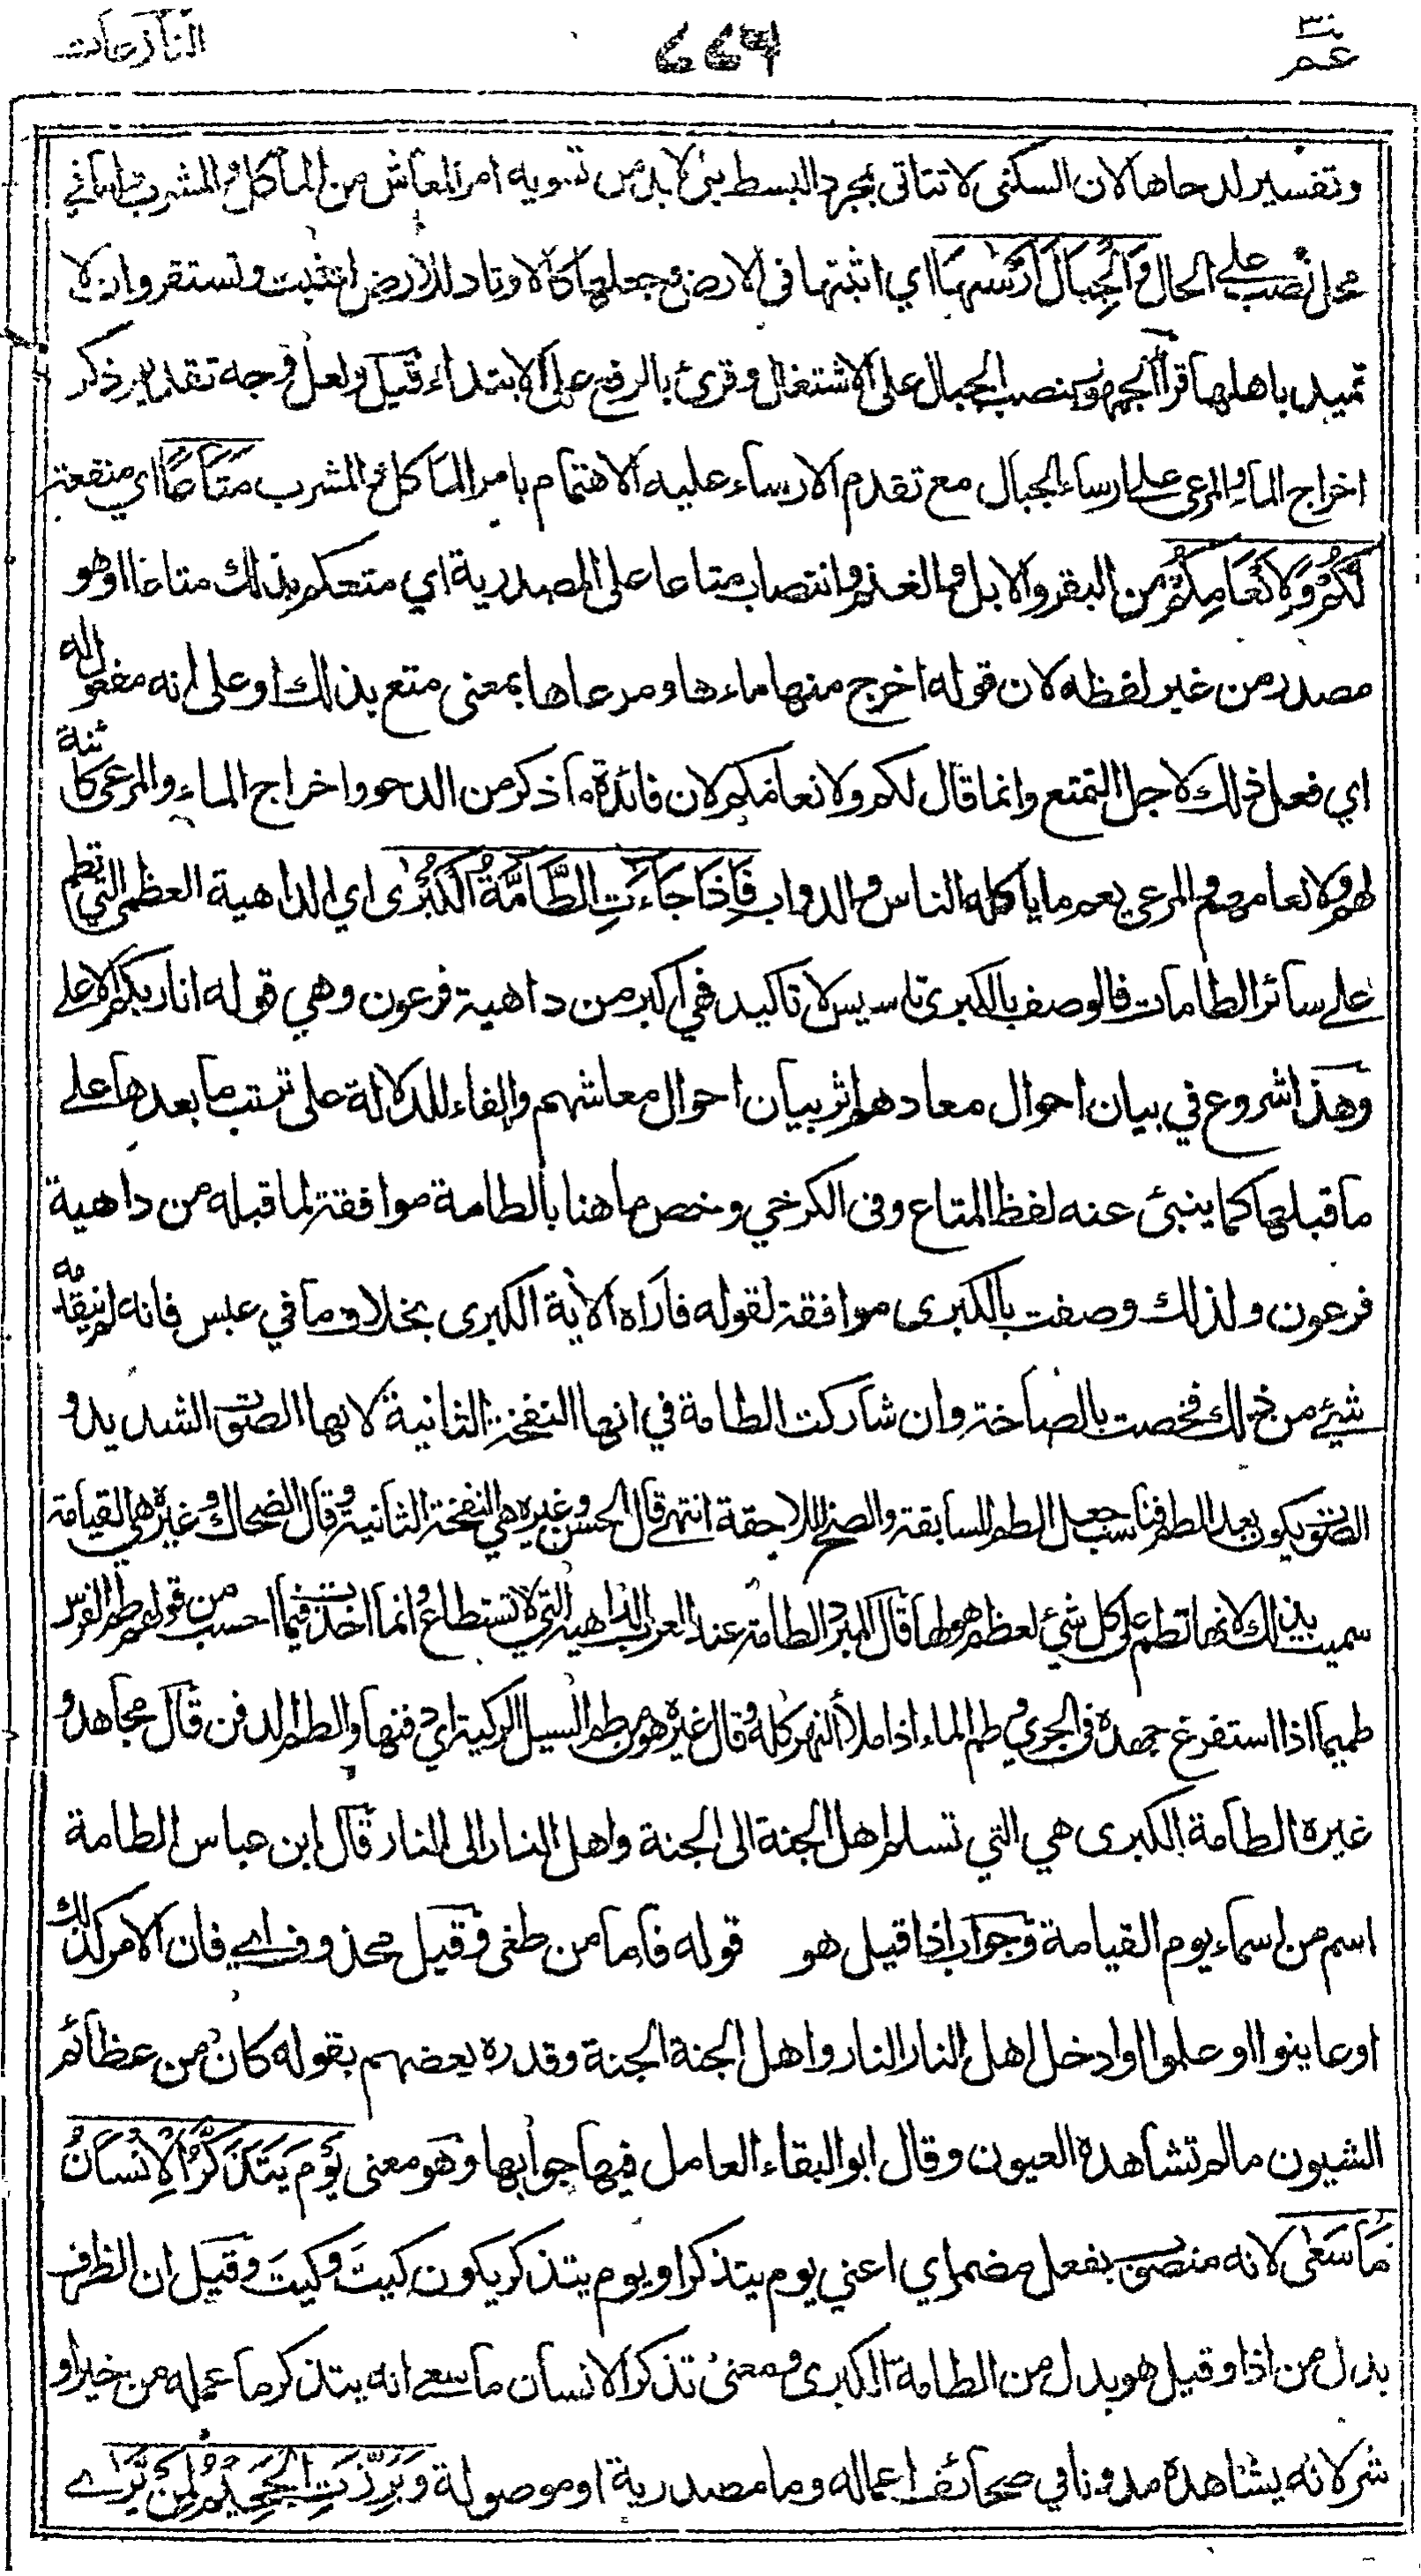 عم ٣٠
النازعات
وتفسير لدحاها لان السكنى لا تتاتى بمجرد البسط بل لا بد من تسوية امر المعاش من المآكل والمشرب او انها في
محل نصب على الحال وَالْجِبَالَ أَرْسٰهَا اي اثبتها في الارض وجعلها كالاوتاد للارض لتثبت وتستقر وان لا
تميد باهلها قرأ الجمهور بنصب الجبال على الاشتغال وقرئ بالرفع على الابتداء قيل ولعل وجه تقديم ذكر
اخراج الماء والمرعى على ارساء الجبال مع تقدم الارساء عليه الاهتمام بامر المآكل والمشرب مَتَاعًا اي منفعة
لَّكُمْ وَلِأَنْعَامِكُمْ من البقر والابل والغنم وانتصاب متاعا على المصدرية اي متعكم بذلك متاعا او هو
مصدر من غير لفظه لان قوله اخرج منها ماءها ومرعاها بمعنى متع بذلك او على انه مفعول له
اي فعل ذلك لاجل التمتع وانما قال لكم ولانعامكم لان فائدة ما ذكر من الدحو واخراج الماء والمرعى كائنة
لهم ولانعامهم والمرعى يعم ما ياكله الناس والدواب فَإِذَا جَاءَتِ الطَّامَّةُ الْكُبْرٰى اي الداهية العظمى التي تطم
على سائر الطامات فالوصف بالكبرى تاسيس لا تاكيد فهي اكبر من داهية فرعون وهي قوله انا ربكم الاعلى
وهذا شروع في بيان احوال معادهم اثر بيان احوال معاشهم والفاء للدلالة على ترتب ما بعدها على
ما قبلها كما ينبئ عنه لفظ المتاع وفي الكرخي وخص ما هنا بالطامة موافقة لما قبله من داهية
فرعون ولذلك وصفت بالكبرى موافقة لقوله فاراه الآية الكبرى بخلاف ما في عبس فانه لم يتقدمه
شيئ من ذلك فخصت بالصاخة وان شاركت الطامة في انها النفخة الثانية لانها الصوت الشديد و
الصوت يكون بعد الطم فناسب جعل الطم للسابقة والصخ للاحقة انتهى قال الحسن وغيره هي النفخة الثانية وقال الضحاك وغيره هي القيامة
سميت بذلك لانها تطم على كل شيئ لعظم هولها قال المبرد الطامة عند العرب الداهية التي لا تستطاع وانما اخذت فيما احسب من قولهم طم الفرس
طميما اذا استفرغ جهده في الجري وطم الماء اذا ملأ النهر كله وقال غيره هو من طم السيل الركية اي دفنها والطم الدفن قال مجاهد و
غيره الطامة الكبرى هي التي تسلم اهل الجنة الى الجنة واهل النار الى النار قال ابن عباس الطامة
اسم من اسماء يوم القيامة وجواب اذا قيل هو قوله فاما من طغى وقيل محذوف اي فان الامر كذلك
او عاينوا او علموا او ادخل اهل النار النار واهل الجنة الجنة وقدره بعضهم بقوله كان من عظائم
الشيون ما لم تشاهده العيون وقال ابو البقاء العامل فيها جوابها وهو معنى يَوْمَ يَتَذَكَّرُ الْإِنْسَانُ
مَا سَعٰى لانه منصوب بفعل مضمر اي اعني يوم يتذكر او يوم يتذكر يكون كيت وكيت وقيل ان الظرف
بدل من اذا وقيل هو بدل من الطامة الكبرى ومعنى تذكر الانسان ما سعى انه يتذكر ما عمله من خير او
شر لانه يشاهده مدونا في صحائف اعماله وما مصدرية او موصولة وَبُرِّزَتِ الْجَحِيْمُ لِمَنْ يَّرٰى